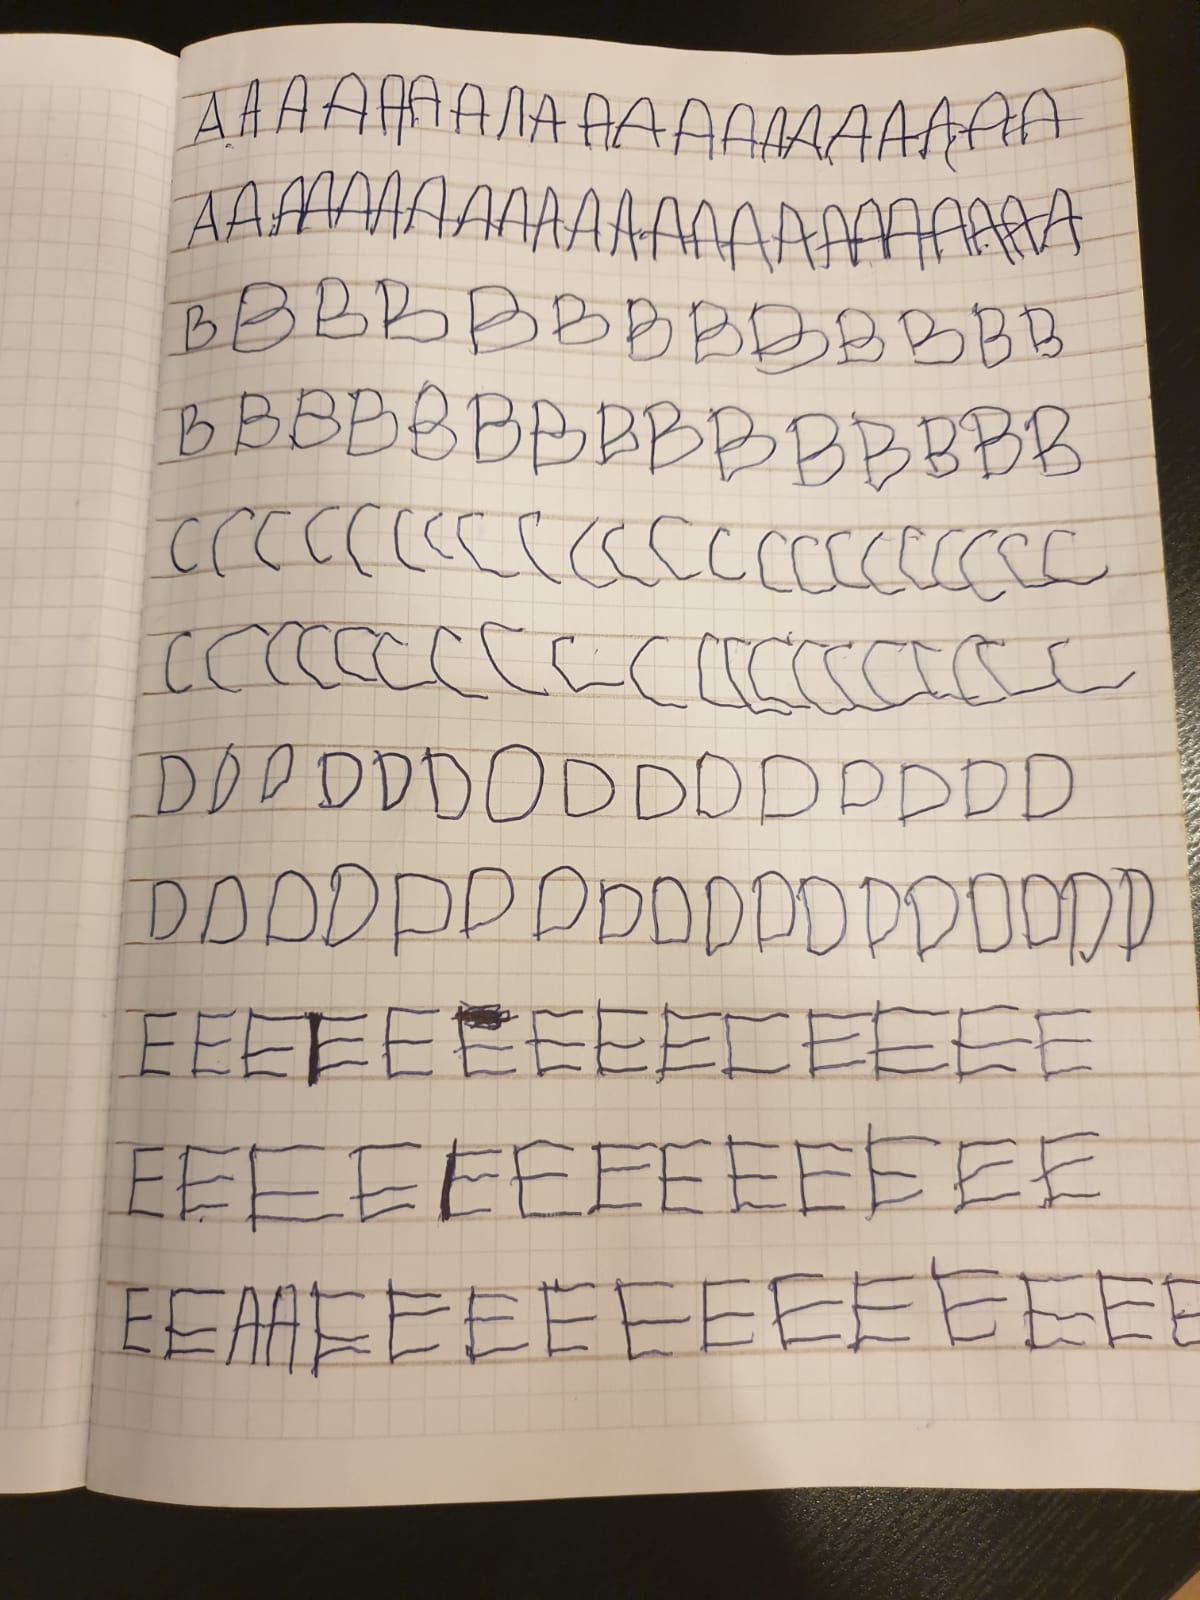 A A A A A A A A A A A A A A A A A A A A A
A A A A A A A A A A A A A A A A A A A A A A A A
B B B B B B B B B B B B B
B B B B B B B B B B B B B B B
C C C C C C C C C C C C C C C C C C C C C C C
C C C C C C C C C C C C C C C C C C C C
D D D D D D D D D D D D D D D
D D D D D D D D D D D D D D D D D D
E E E E E E E E E E E E E E
E E E E E E E E E E E E E
E E A A E E E E E E E E E E E E